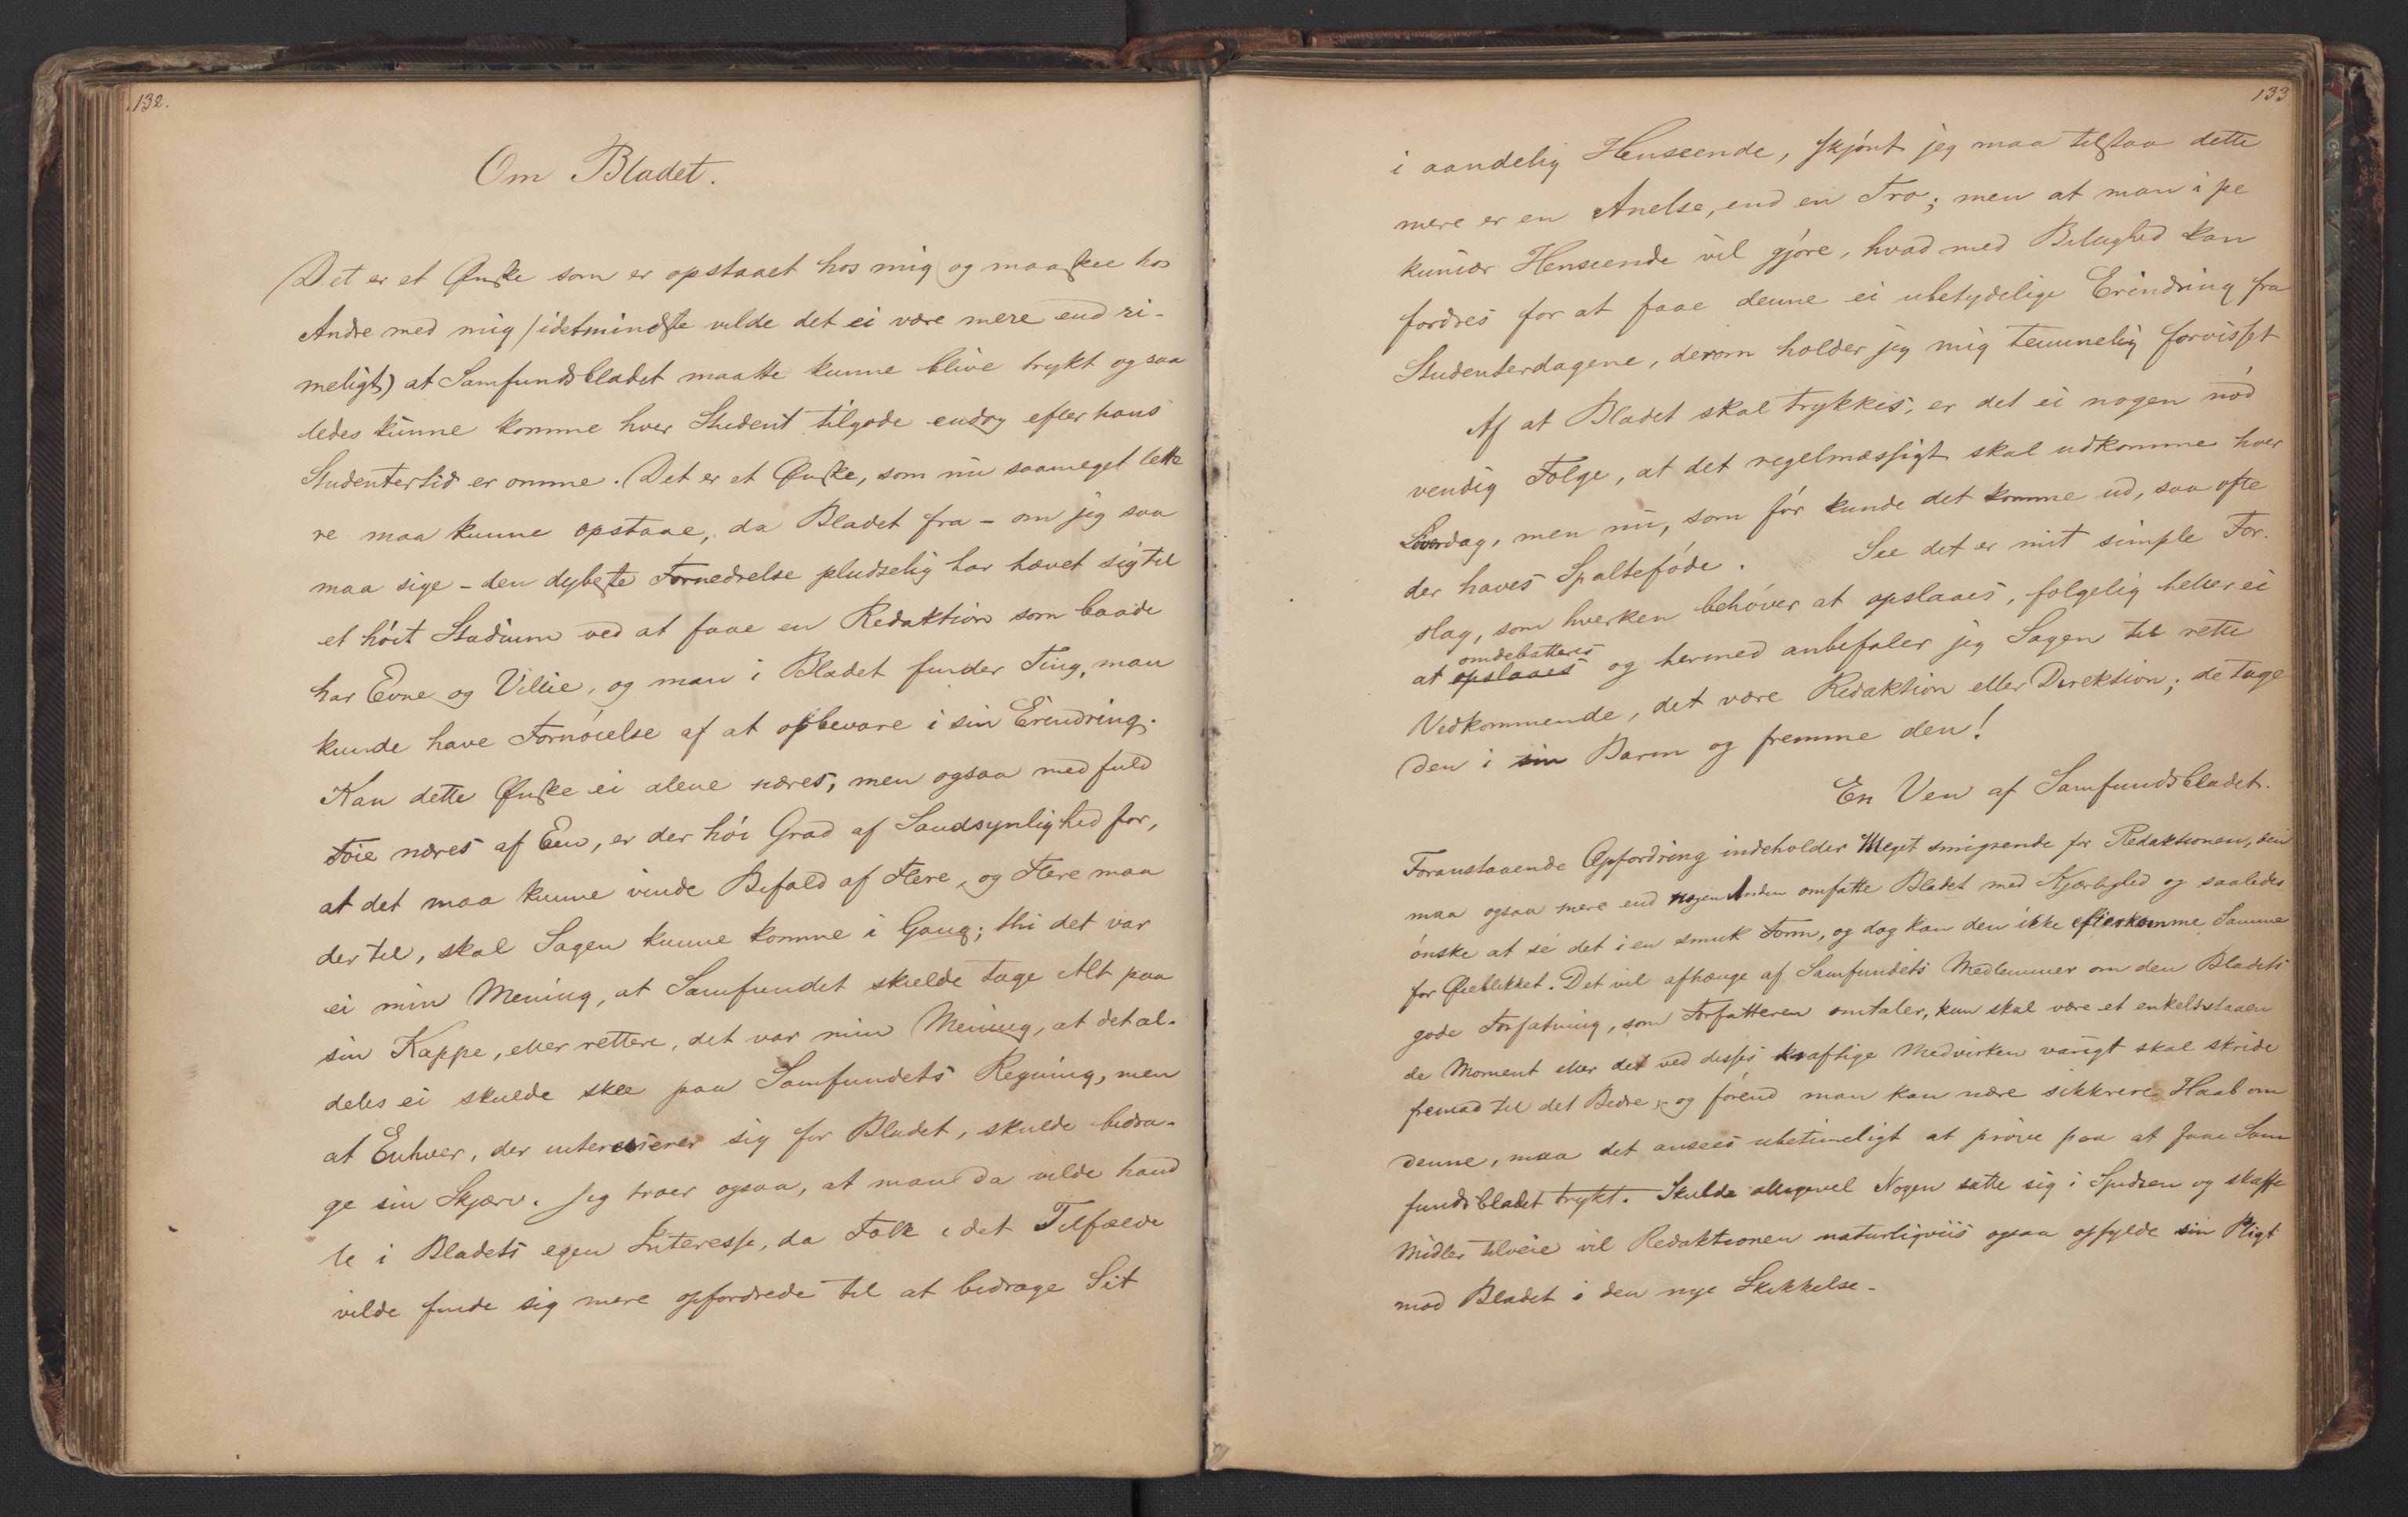 132.
Om Bladet.
Det er et Ønske som er opstaaet hos mig og maaskee hos
Andre med mig /idetmindste vilde det ei være mere end ri-
meligt) at Samfundsbladet maatte kunne blive trykt og saa
ledes kunne komme hver Student tilgode endog efter hans
Studentertid er omme. Det er et Ønske, som nu saameget lette
re maa kunne opstaae, da Bladet fra - om jeg saa
maa sige - den dybeste Fornedrelse pludselig har hævet sig til
et høit Stadium ved at faae en Redaktion som baade
har Evne og Villie, og man i Bladet finder Ting, man
kunde have Fornøielse af at opbevare i sin Erindring.
Kan dette Ønske ei alene næres, men ogsaa med fuld
Føie næres af Een, er der høi Grad af Sandsynlighed for,
at det maa kunne vinde Bifald af Flere, og Flere maa
der til, skal Sagen kunne komme i Gang; thi det var
ei min Mening, at Samfundet skulde tage Alt paa
sin Kappe, eller rettere, det var min Mening, at det al-
deles ei skulde skee paa Samfundets Regning, men
at Enhver, der interesserer sig for Bladet, skulde bidra-
ge sin Skjærv. Jeg troer ogsaa, at man da vilde hand
le i Bladets egen Interesse, da Folk i det Tilfælde
vilde finde sig mere opfordrede til at bidrage Sit
133
i aandelig Henseende, skjønt jeg maa tilstaa dette
mere er en Anelse, end en Tro; men at man i pe
kuniær Henseende vil gjøre, hvad med Billighed kan
fordres for at faae denne ei ubetydelige Erindring fra
Studenterdagene, derom holder jeg mig temmelig forvisset
Af at Bladet skal trykkes, er det ei nogen nød
vendig Følge, at det regelmæssigt skal udkomme hver
Løverdag, men nu, som før kunde det komme ud, saa ofte
der haves Spalteføde. See det er mit simple For-
slag, som hverken behøver at opslaaes, følgelig heller ei
omdebatteres
at opslaaes og hermed anbefaler jeg Sagen til rette
Vedkommende, det være Redaktion eller Direktion; de tage
den i sin Barm og fremme den!
En Ven af Samfundsbladet.
Foranstaaende Opfordring indeholder Meget smigrende for Redaktionen, den
maa ogsaa mere end nogen Anden omfatte Bladet med Kjærlighed og saaledes
ønske at se det i en smuk Form, og dog kan den ikke efterkomme Samme
for Øieblikket. Det vil afhænge af Samfundets Medlemmer om den Bladets
gode Forfatning, som Forfatteren omtaler, kun skal være et enkeltstaaen
de Moment eller det ved disses kraftige Medvirken varigt skal skride
fremad til det Bedre, og førend man kan nære sikkrere Haab om
denne, maa det ansees ubetimeligt at prøve paa at faae Sam
fundsbladet trykt. Skulde alligevel Nogen sætte sig i Spidsen og skaffe
Midler tilveie vil Redaktionen naturligviis ogsaa opfylde sin Pligt
mod Bladet i den nye Skikkelse.